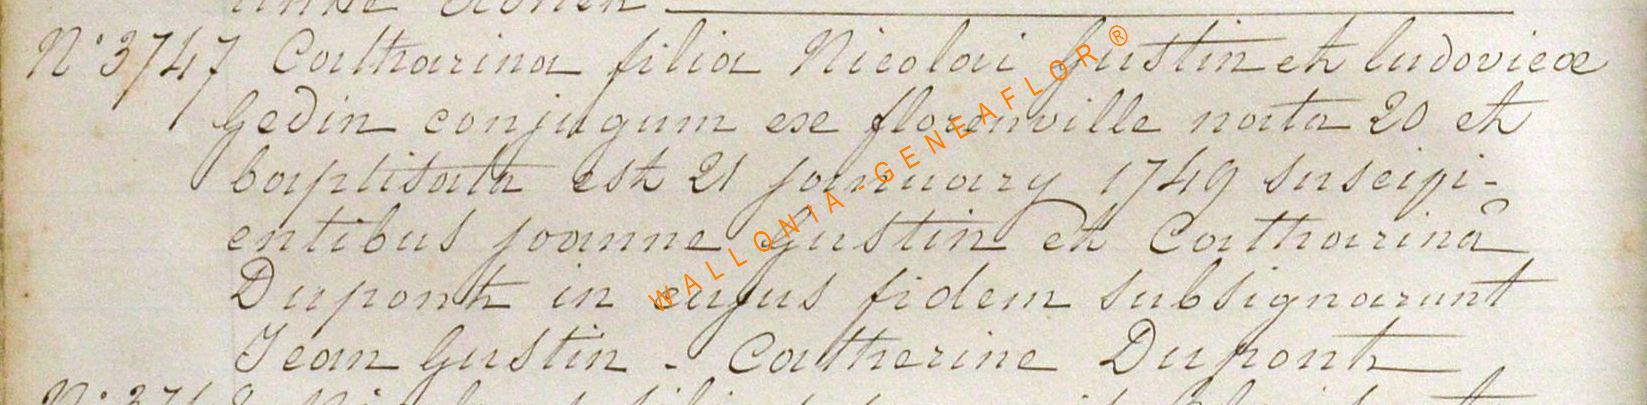 N° 3747 Catharina filia Nicolai Gustin et ludovicæ
Gedin conjugum ex florenville nata 20 et
baptisata est 21 january 1749 suscipi-
entibus joanne Gustin et Catharinâ
Dupont in cujus fidem subsignarunt
Jean Gustin - Catherine Dupont
WALLONIA-GENEAFLOR®